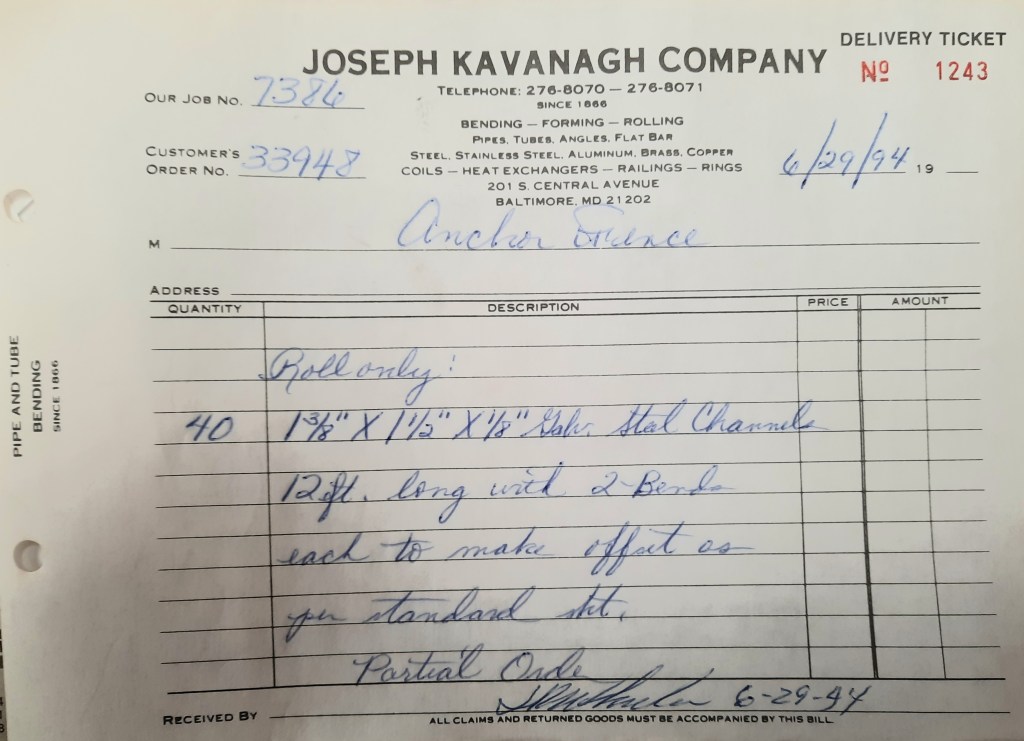 DELIVERY TICKET
JOSEPH KAVANAGH COMPANY
No 1243
TELEPHONE: 276-8070 — 276-8071
SINCE 1866
OUR JOB NO. 7386
BENDING — FORMING — ROLLING
PIPES, TUBES, ANGLES, FLAT BAR
STEEL, STAINLESS STEEL, ALUMINUM, BRASS, COPPER
CUSTOMER'S
ORDER NO. 33948
COILS — HEAT EXCHANGERS — RAILINGS — RINGS
6/29/94 19
201 S. CENTRAL AVENUE
BALTIMORE, MD 21202
M Anchor
ADDRESS
QUANTITY DESCRIPTION PRICE AMOUNT
Roll only:
40 1 3/8" X 1 1/2" X 1/8" Galv. Steel Channels
12 ft. long with 2-Bends
each to make offset as
per standard skt.
Partial Order
RECEIVED BY 6-29-94
ALL CLAIMS AND RETURNED GOODS MUST BE ACCOMPANIED BY THIS BILL
PIPE AND TUBE
BENDING
SINCE 1866